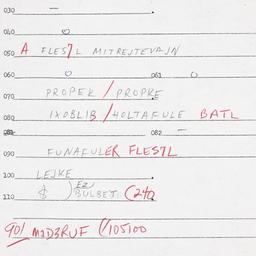 030 —
040
050 A FLES7L MITREJTEVAJN
060
061
070 PROPEK / PROPKE
080 IXOBLIB / HOLTAFULE BATL
082 —
090 FUNAFULER FLES7L
100 LEJKE
110 & ) EZ BULBET (240
901 M2D3RUF (/105100